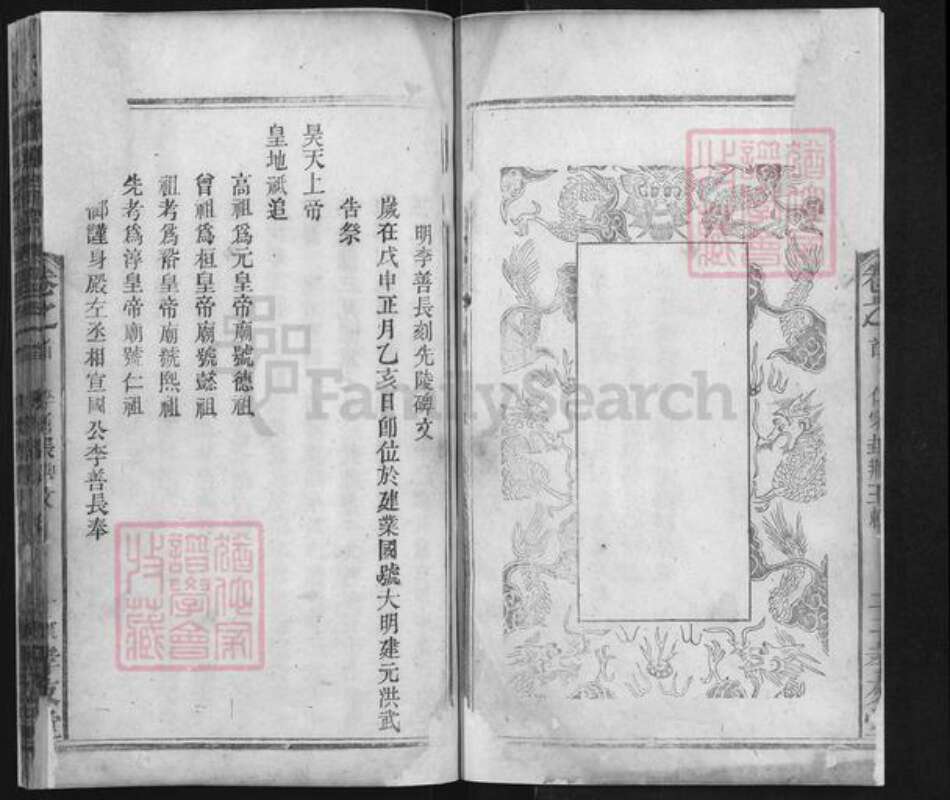 明李善長刻先陵碑文
歲在戊申正月乙亥日卽位於建業國號大明建元洪武
告祭
昊天上帝
皇地祇追
高祖爲元皇帝廟號德祖
曾祖爲桓皇帝廟號懿祖
祖考爲裕皇帝廟號熙祖
先考爲淳皇帝廟號仁祖
謹身殿左丞相宣國公李善長奉
譜學會
收藏
譜學會
收藏
FamilySearch